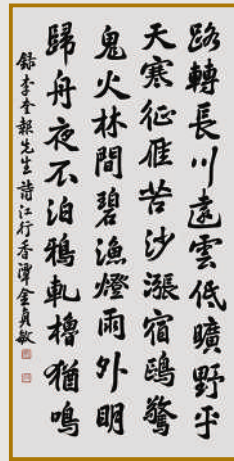 路轉長川遠雲低曠野平
天寒征雁苦沙漲宿鷗驚
鬼火林間碧漁燈雨外明
歸舟夜不泊鴉軋櫓猶鳴
錄李奎報先生詩江行香潭金貞敏